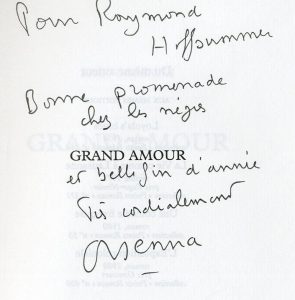 Pour Raymond
Hoffsummer
Bonne promenade
chez les nègres
GRAND AMOUR
et belle fin d'année
Très cordialement
Orsenna